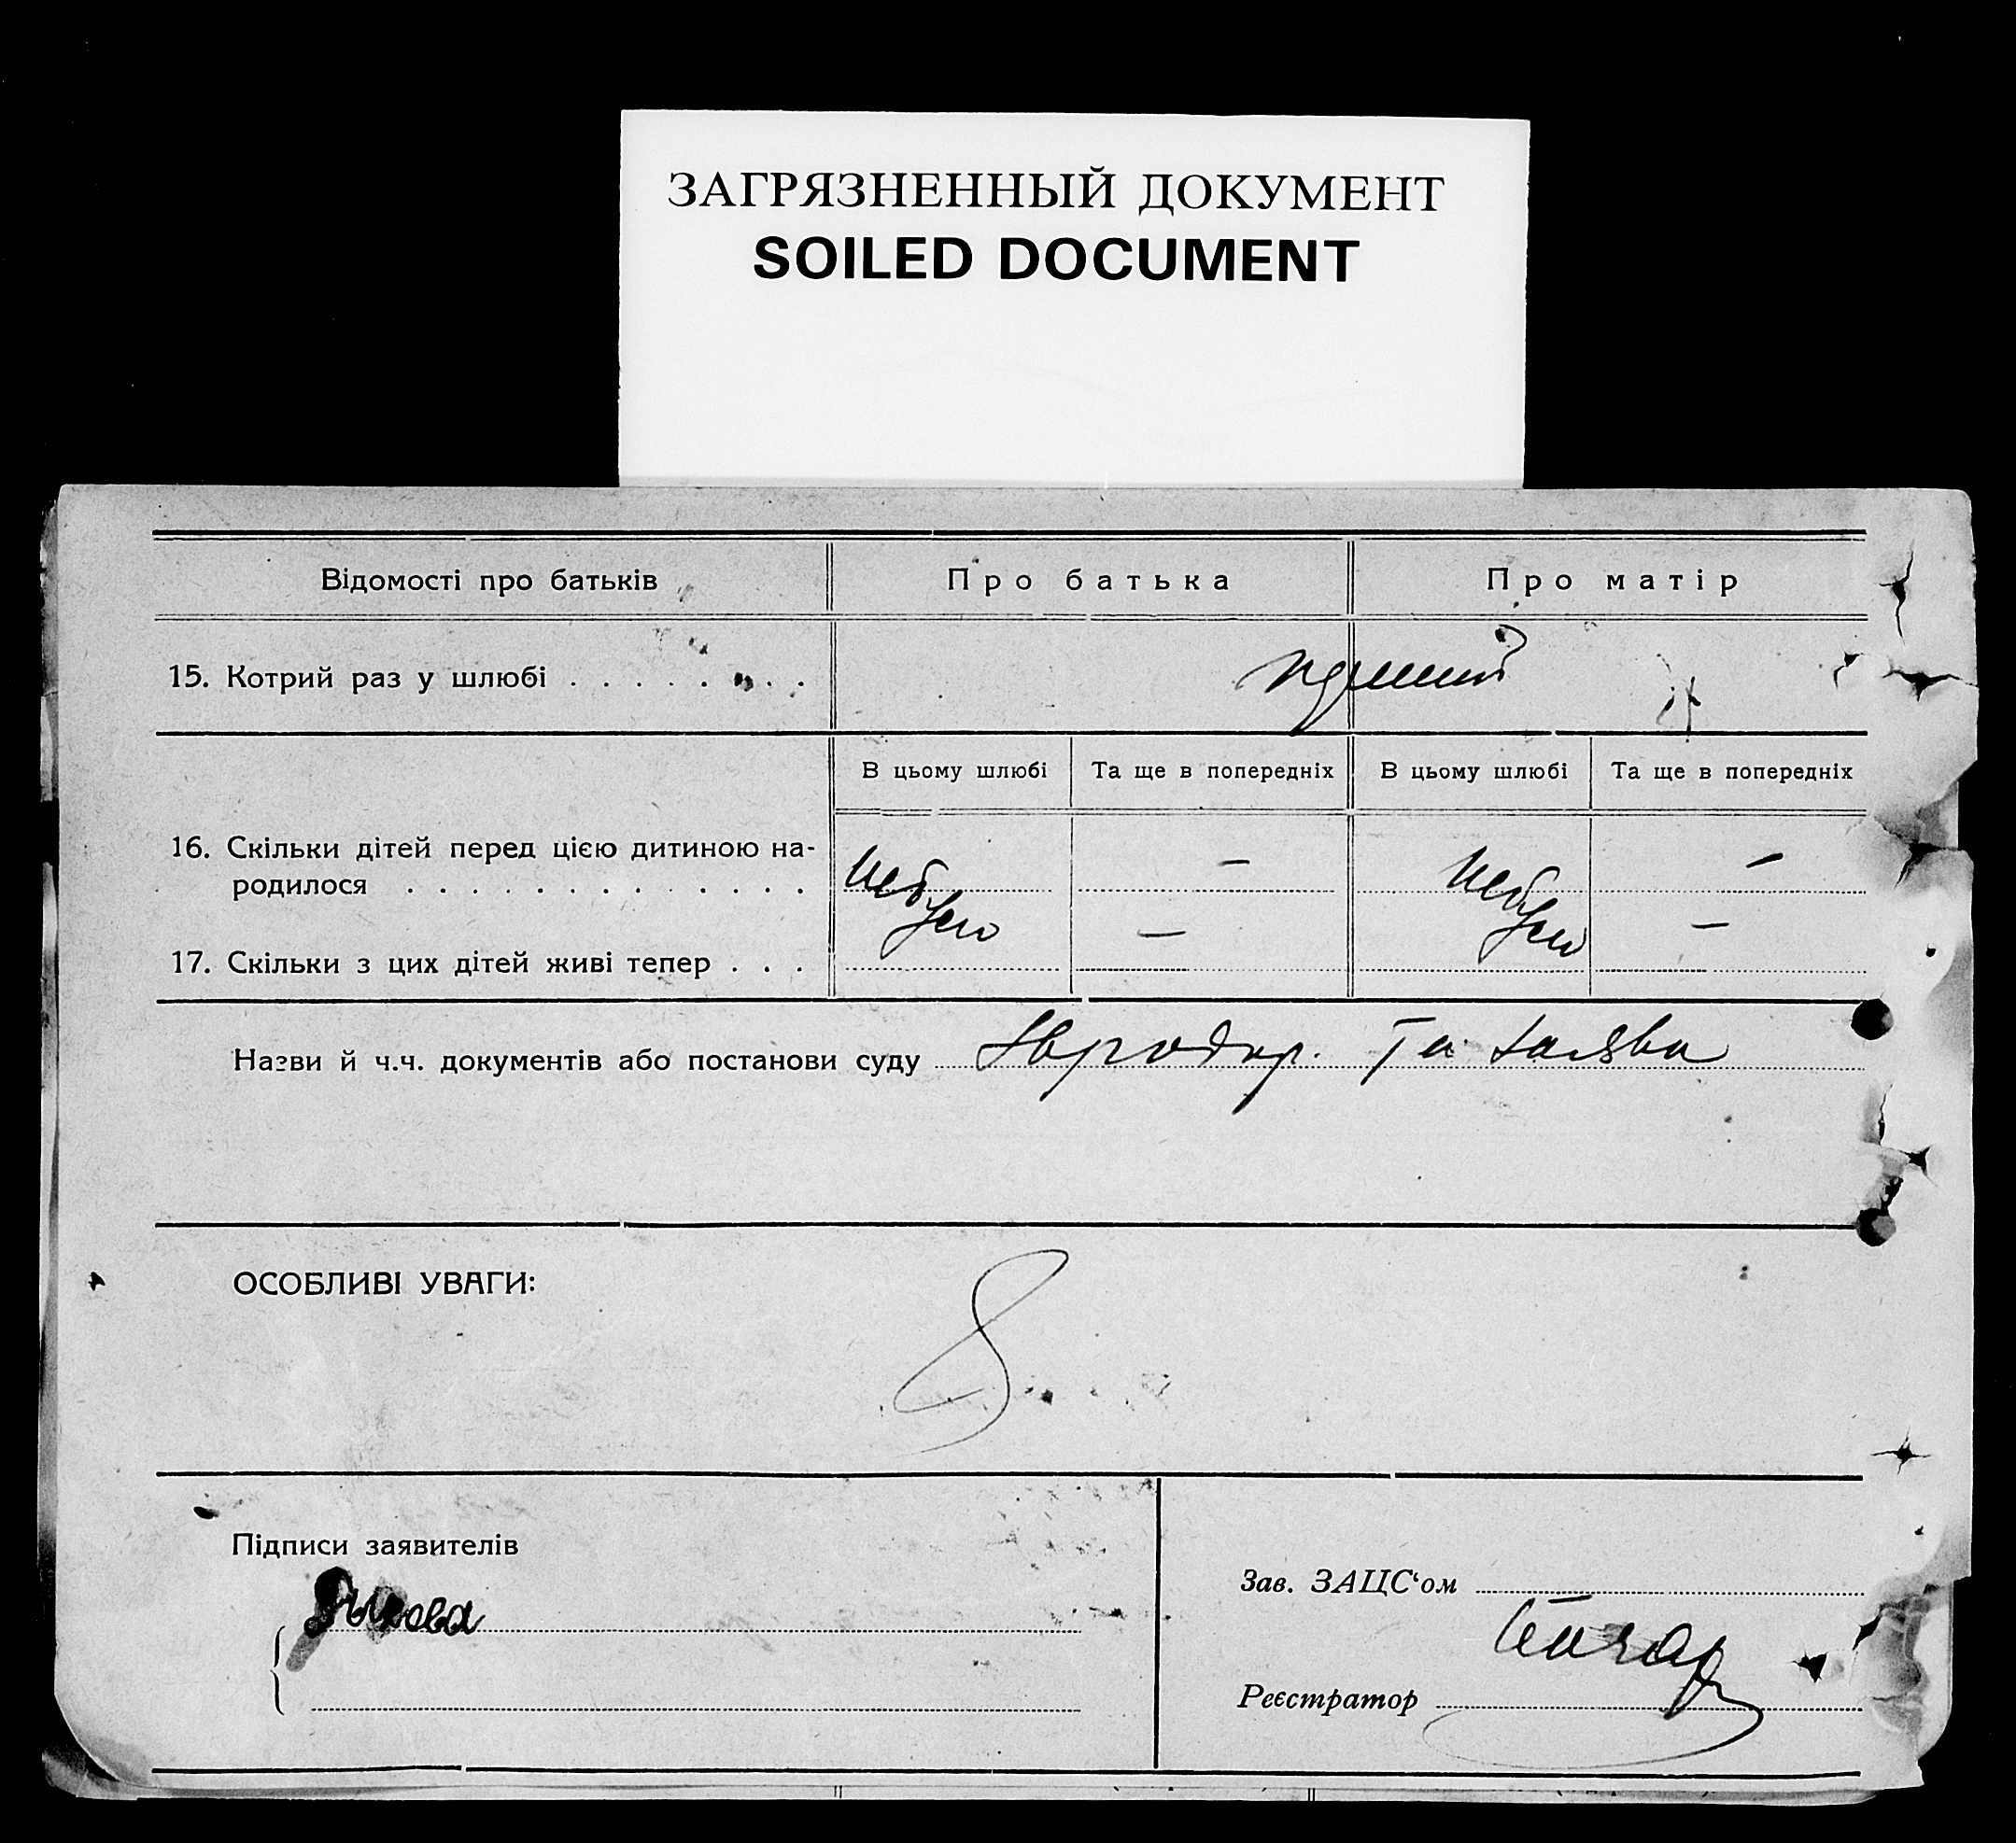 ЗАГРЯЗНЕННЫЙ ДОКУМЕНТ
SOILED DOCUMENT
Відомості про батьків Про батька Про матір
15. Котрий раз у шлюбі . . . . . . . .
В цьому шлюбі Та ще в попередніх В цьому шлюбі Та ще в попередніх
16. Скільки дітей перед цією дитиною на-
родилося . . . . . . . . . . . . . — —
небуло небуло
17. Скільки з цих дітей живі тепер . . . — —
Назви й ч.ч. документів або постанови суду та заява
ОСОБЛИВІ УВАГИ:
Підписи заявителів
Зав. ЗАЦС‘ом
Реєстратор